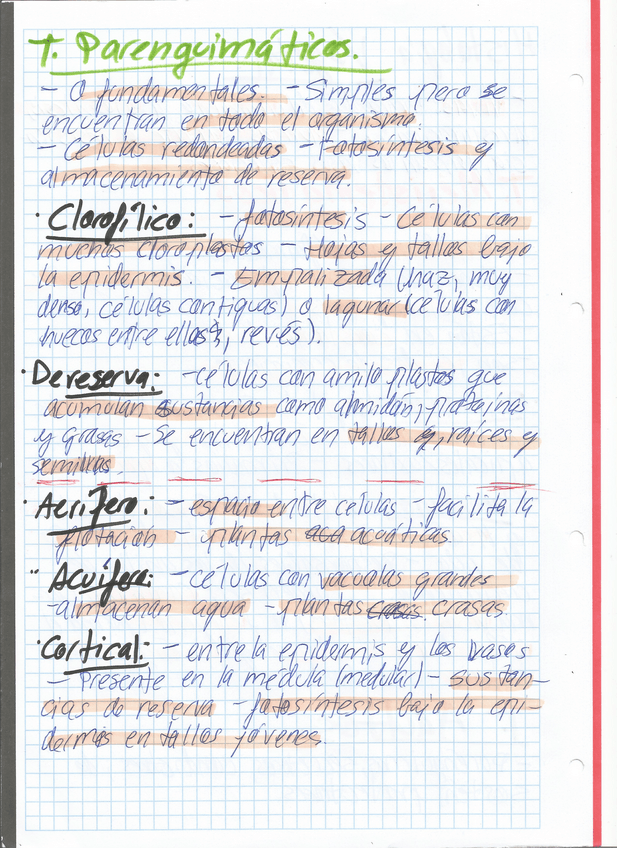 T. Parenquimáticos.
- O fundamentales. - Simples pero se
encuentran en todo el organismo.
- Células redondeadas - Fotosíntesis y
almacenamiento de reserva.
· Clorofílico: - fotosíntesis - Células con
muchos cloroplastos - Hojas y tallos bajo
la epidermis. - Empalizada (haz, muy
denso, células contiguas) o lagunar (células con
huecos entre ellas, revés).
· De reserva: - células con amiloplastos que
acumulan sustancias como almidón, proteínas
y grasas - Se encuentran en tallos, raíces y
semillas.
· Aerífero: - espacio entre células - facilita la
flotación - plantas acuáticas.
·· Acuífero: - células con vacuolas grandes
- almacenan agua - plantas crasas.
· Cortical: - entre la epidermis y los vasos
- Presente en la médula (medular) - sustan-
cias de reserva - fotosíntesis bajo la epi-
dermis en tallos jóvenes.